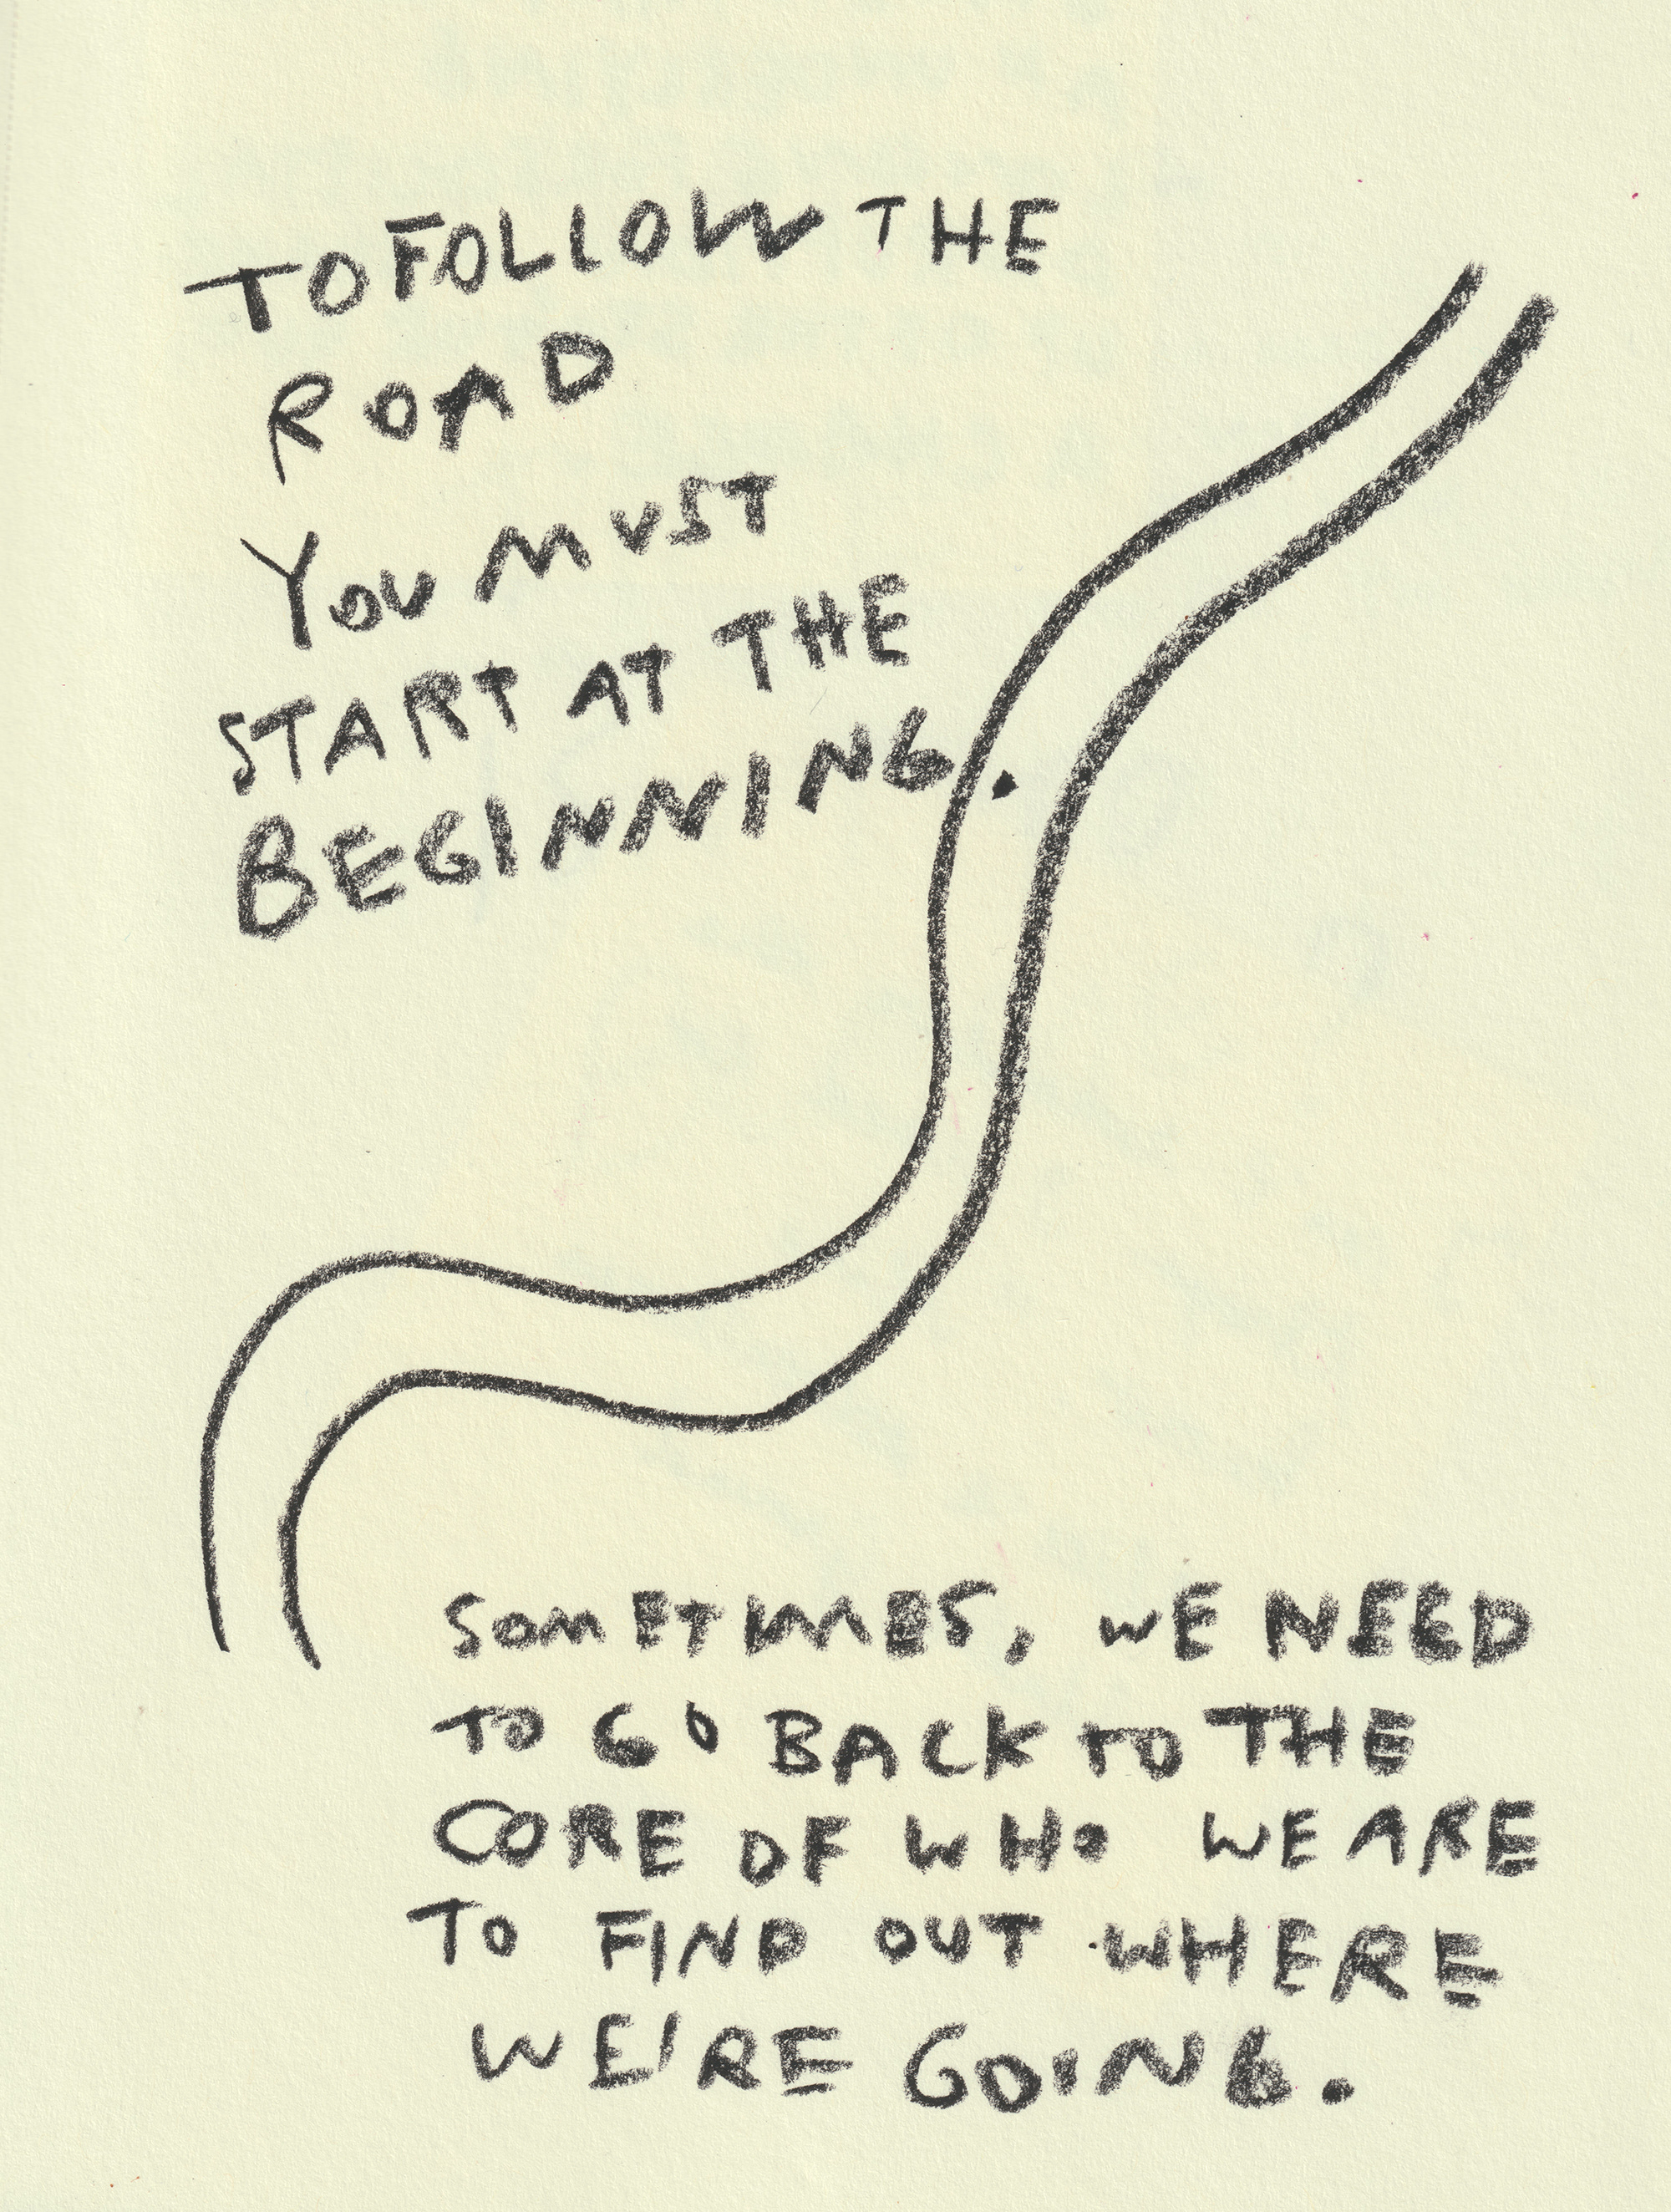 TO FOLLOW THE
ROAD
YOU MUST
START AT THE
BEGINNING.
SOMETIMES, WE NEED
TO GO BACK TO THE
CORE OF WHO WE ARE
TO FIND OUT WHERE
WE'RE GOING.